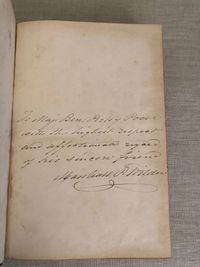 To Maj: Ben: Perley Poore
with the highest respect
and affectionate regard
of his sincere friend
Marshall P. Wilder